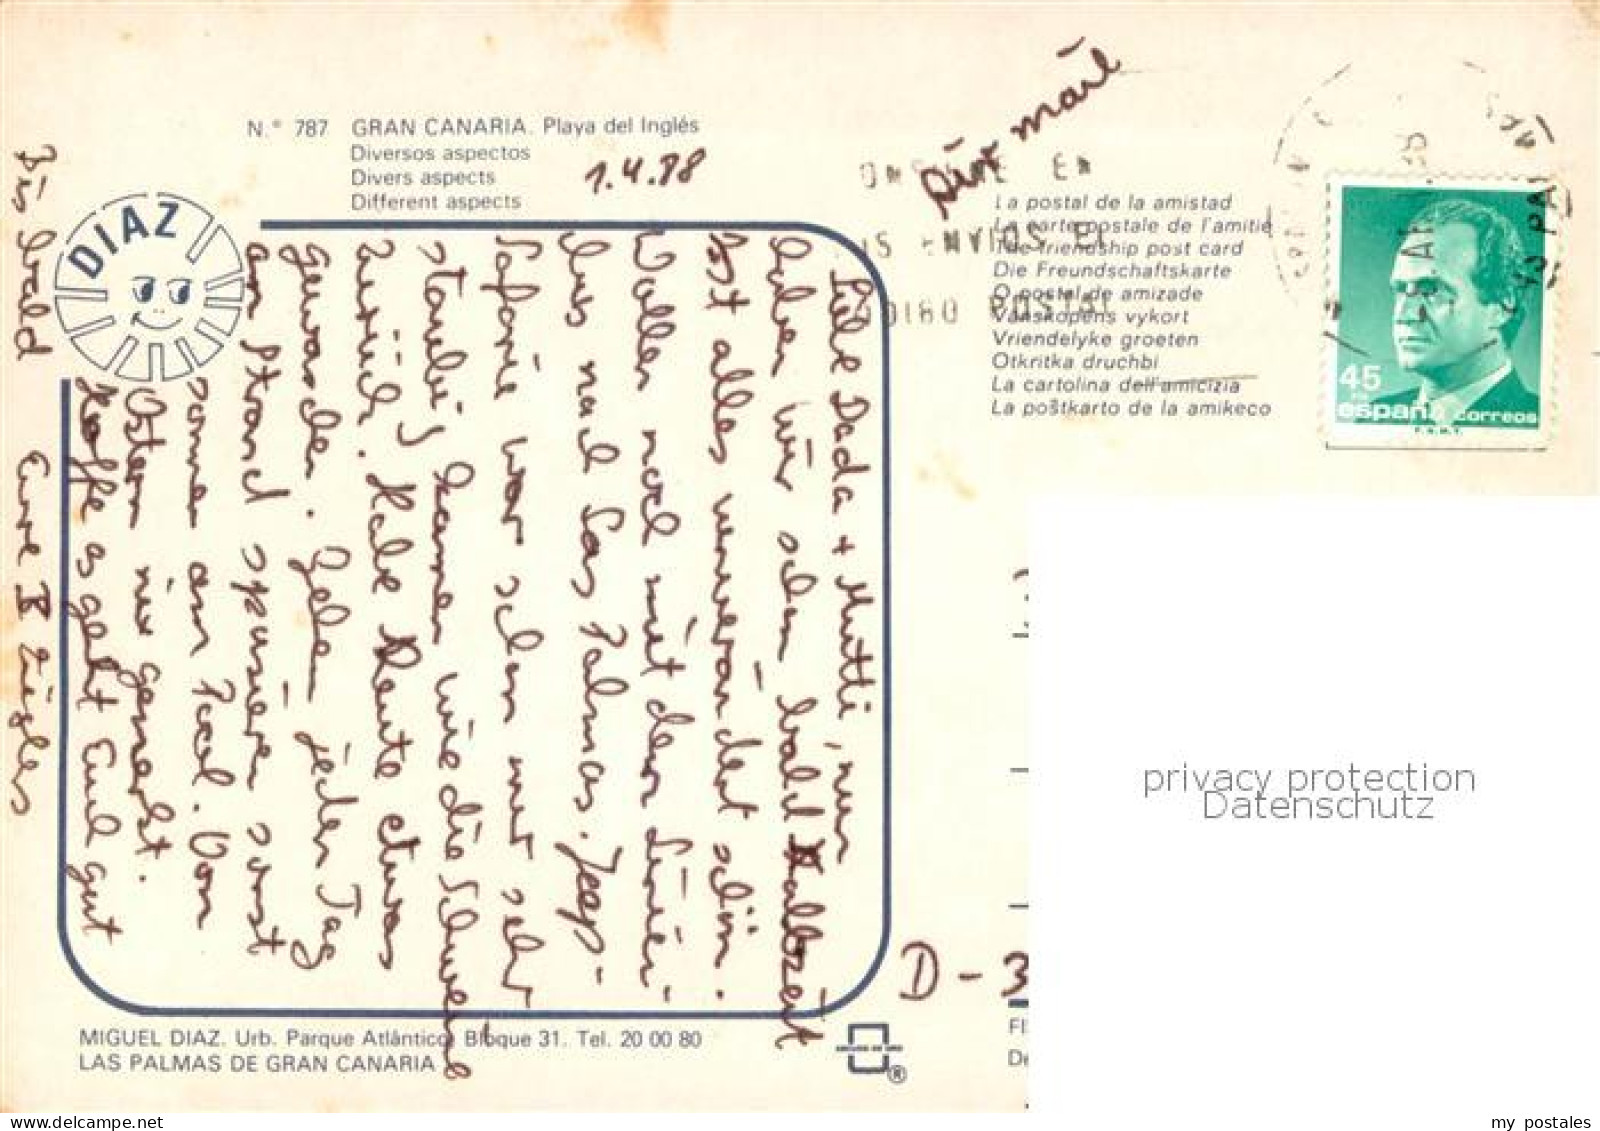 N.º 787 GRAN CANARIA. Playa del Inglés
Diversos aspectos
Divers aspects
Different aspects
1.4.88
Air mail
DIAZ
La postal de la amistad
La carte postale de l'amitié
The friendship post card
Die Freundschaftskarte
O postal de amizade
Vänskopens vykort
Vriendelyke groeten
Otkritka druchbi
La cartolina dell'amicizia
La poštkarto de la amikeco
45
españa correos
F.N.M.T.
Liebe Dada + Mutti, nun
haben wir schon bald Halbzeit
Ist alles unverändert schön.
Wollen noch mit dem Linien-
bus nach Las Palmas. Jeep-
Safarie war schon und sehr
staubig kamen wie die Schweine
zurück. Habe Heute etwas
geworden. Gehen jeden Tag
am Strand spazieren sonst
sonnen am Pool. Von
Ostern nix gemerkt.
Hoffe es geht Euch gut
Bis bald Eure
D-3
MIGUEL DIAZ. Urb. Parque Atlántico, Bloque 31. Tel. 20 00 80
LAS PALMAS DE GRAN CANARIA
®
FI
De
privacy protection
Datenschutz
my postales